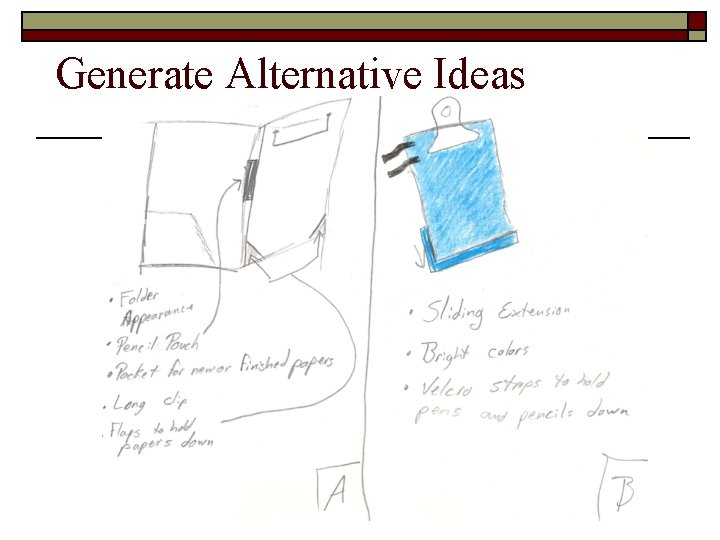 Generate Alternative Ideas
• Folder
Appearance
• Pencil Pouch
• Pocket for new or finished papers
• Long clip
• Flaps to hold
papers down
A
• Sliding Extension
• Bright colors
• Velcro straps to hold
pens and pencils down
B